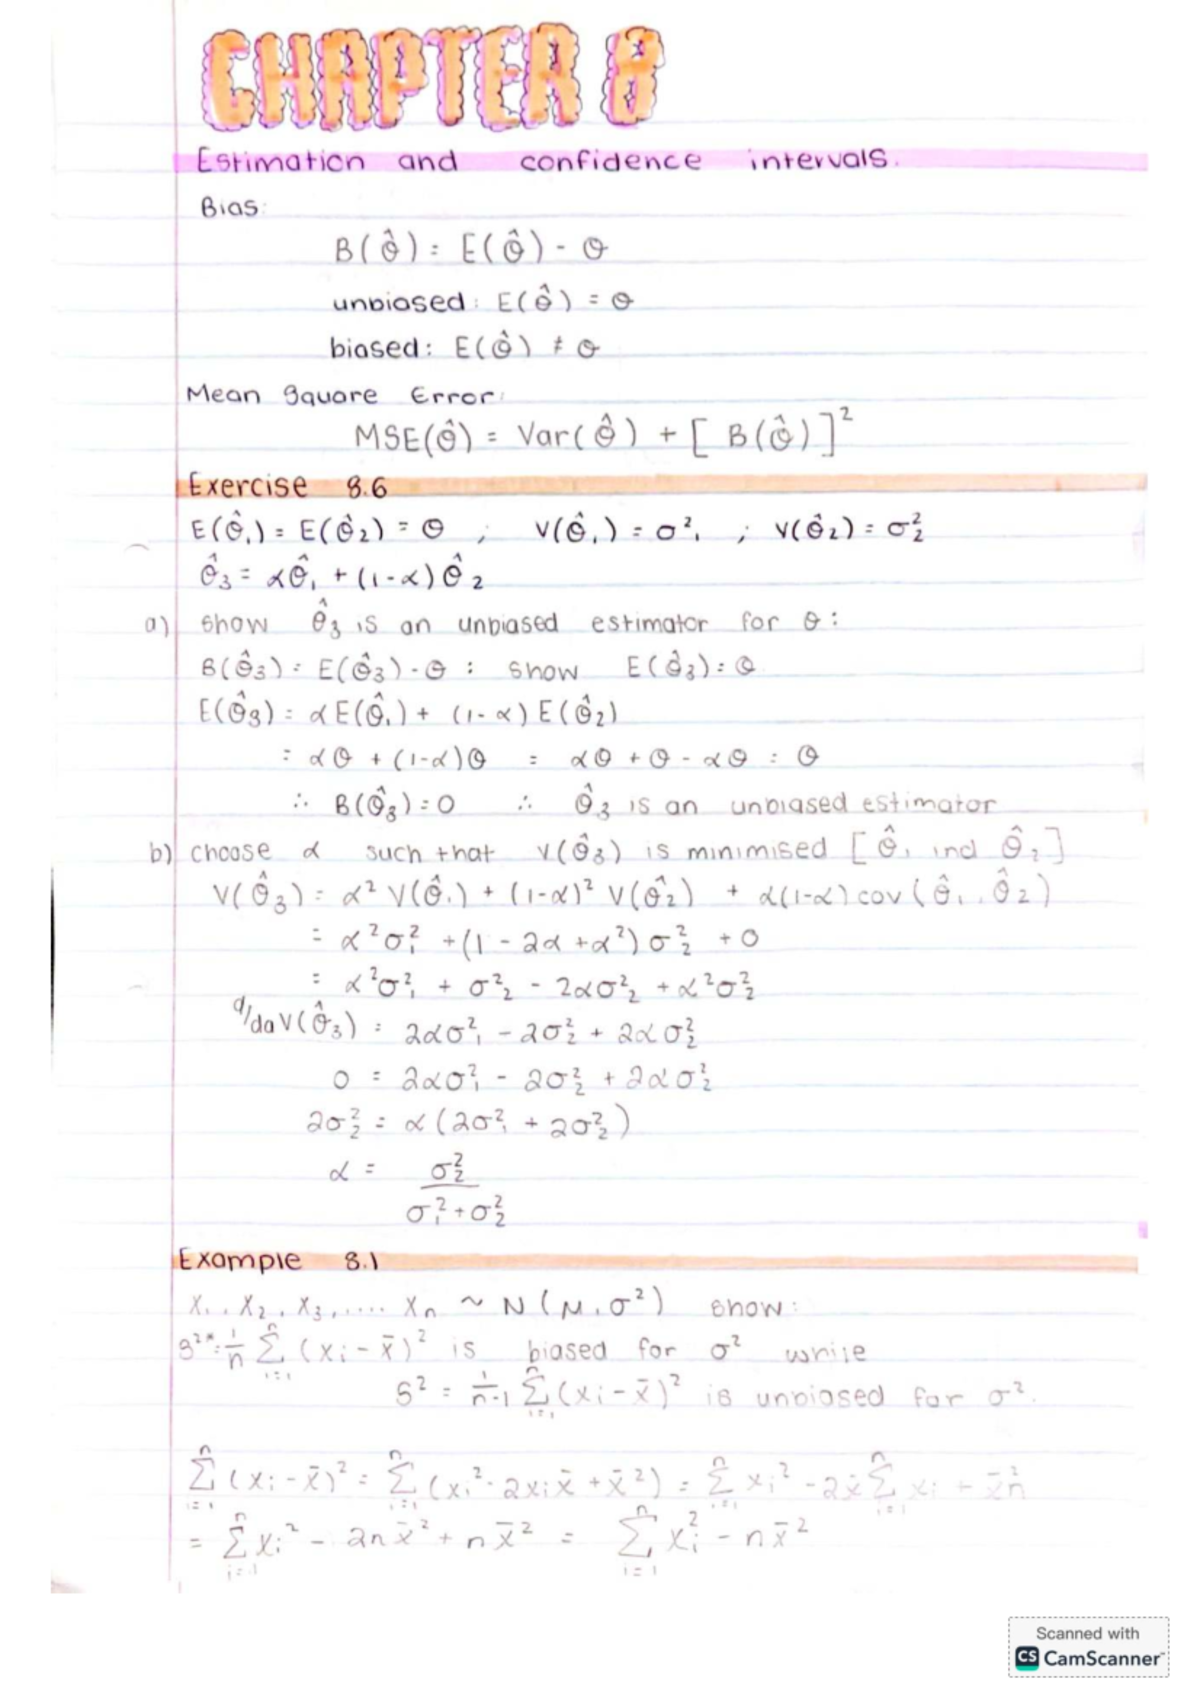 CHAPTER 8
Estimation and confidence intervals.
Bias:
B(θ̂) = E(θ̂) - θ
unbiased: E(θ̂) = θ
biased: E(θ̂) ≠ θ
Mean Square Error:
MSE(θ̂) = Var(θ̂) + [B(θ̂)]²
Exercise 8.6
E(θ̂₁) = E(θ̂₂) = θ ; V(θ̂₁) = σ²₁ ; V(θ̂₂) = σ²₂
θ̂₃ = αθ̂₁ + (1-α)θ̂₂
a) show θ̂₃ is an unbiased estimator for θ:
B(θ̂₃) = E(θ̂₃) - θ : show E(θ̂₃) = θ
E(θ̂₃) = αE(θ̂₁) + (1-α)E(θ̂₂)
= αθ + (1-α)θ = αθ + θ - αθ = θ
∴ B(θ̂₃) = 0 ∴ θ̂₃ is an unbiased estimator
b) choose α such that V(θ̂₃) is minimised [θ̂₁ ind θ̂₂]
V(θ̂₃) = α² V(θ̂₁) + (1-α)² V(θ̂₂) + α(1-α) cov(θ̂₁, θ̂₂)
= α²σ²₁ + (1 - 2α + α²)σ²₂ + 0
= α²σ²₁ + σ²₂ - 2ασ²₂ + α²σ²₂
d/da V(θ̂₃) = 2ασ²₁ - 2σ²₂ + 2ασ²₂
0 = 2ασ²₁ - 2σ²₂ + 2ασ²₂
2σ²₂ = α(2σ²₁ + 2σ²₂)
α = σ²₂
σ²₁ + σ²₂
Example 8.1
X₁, X₂, X₃, .... Xₙ ~ N(μ, σ²) show:
S²* = 1/n Σⁿᵢ₌₁ (xᵢ - x̄)² is biased for σ² while
S² = 1/n-1 Σⁿᵢ₌₁ (xᵢ - x̄)² is unbiased for σ².
Σⁿᵢ₌₁ (xᵢ - x̄)² = Σⁿᵢ₌₁ (xᵢ² - 2xᵢx̄ + x̄²) = Σⁿᵢ₌₁ xᵢ² - 2x̄ Σⁿᵢ₌₁ xᵢ + x̄²n
= Σⁿᵢ₌₁ xᵢ² - 2nx̄² + nx̄² = Σⁿᵢ₌₁ xᵢ² - nx̄²
Scanned with
CS CamScanner™